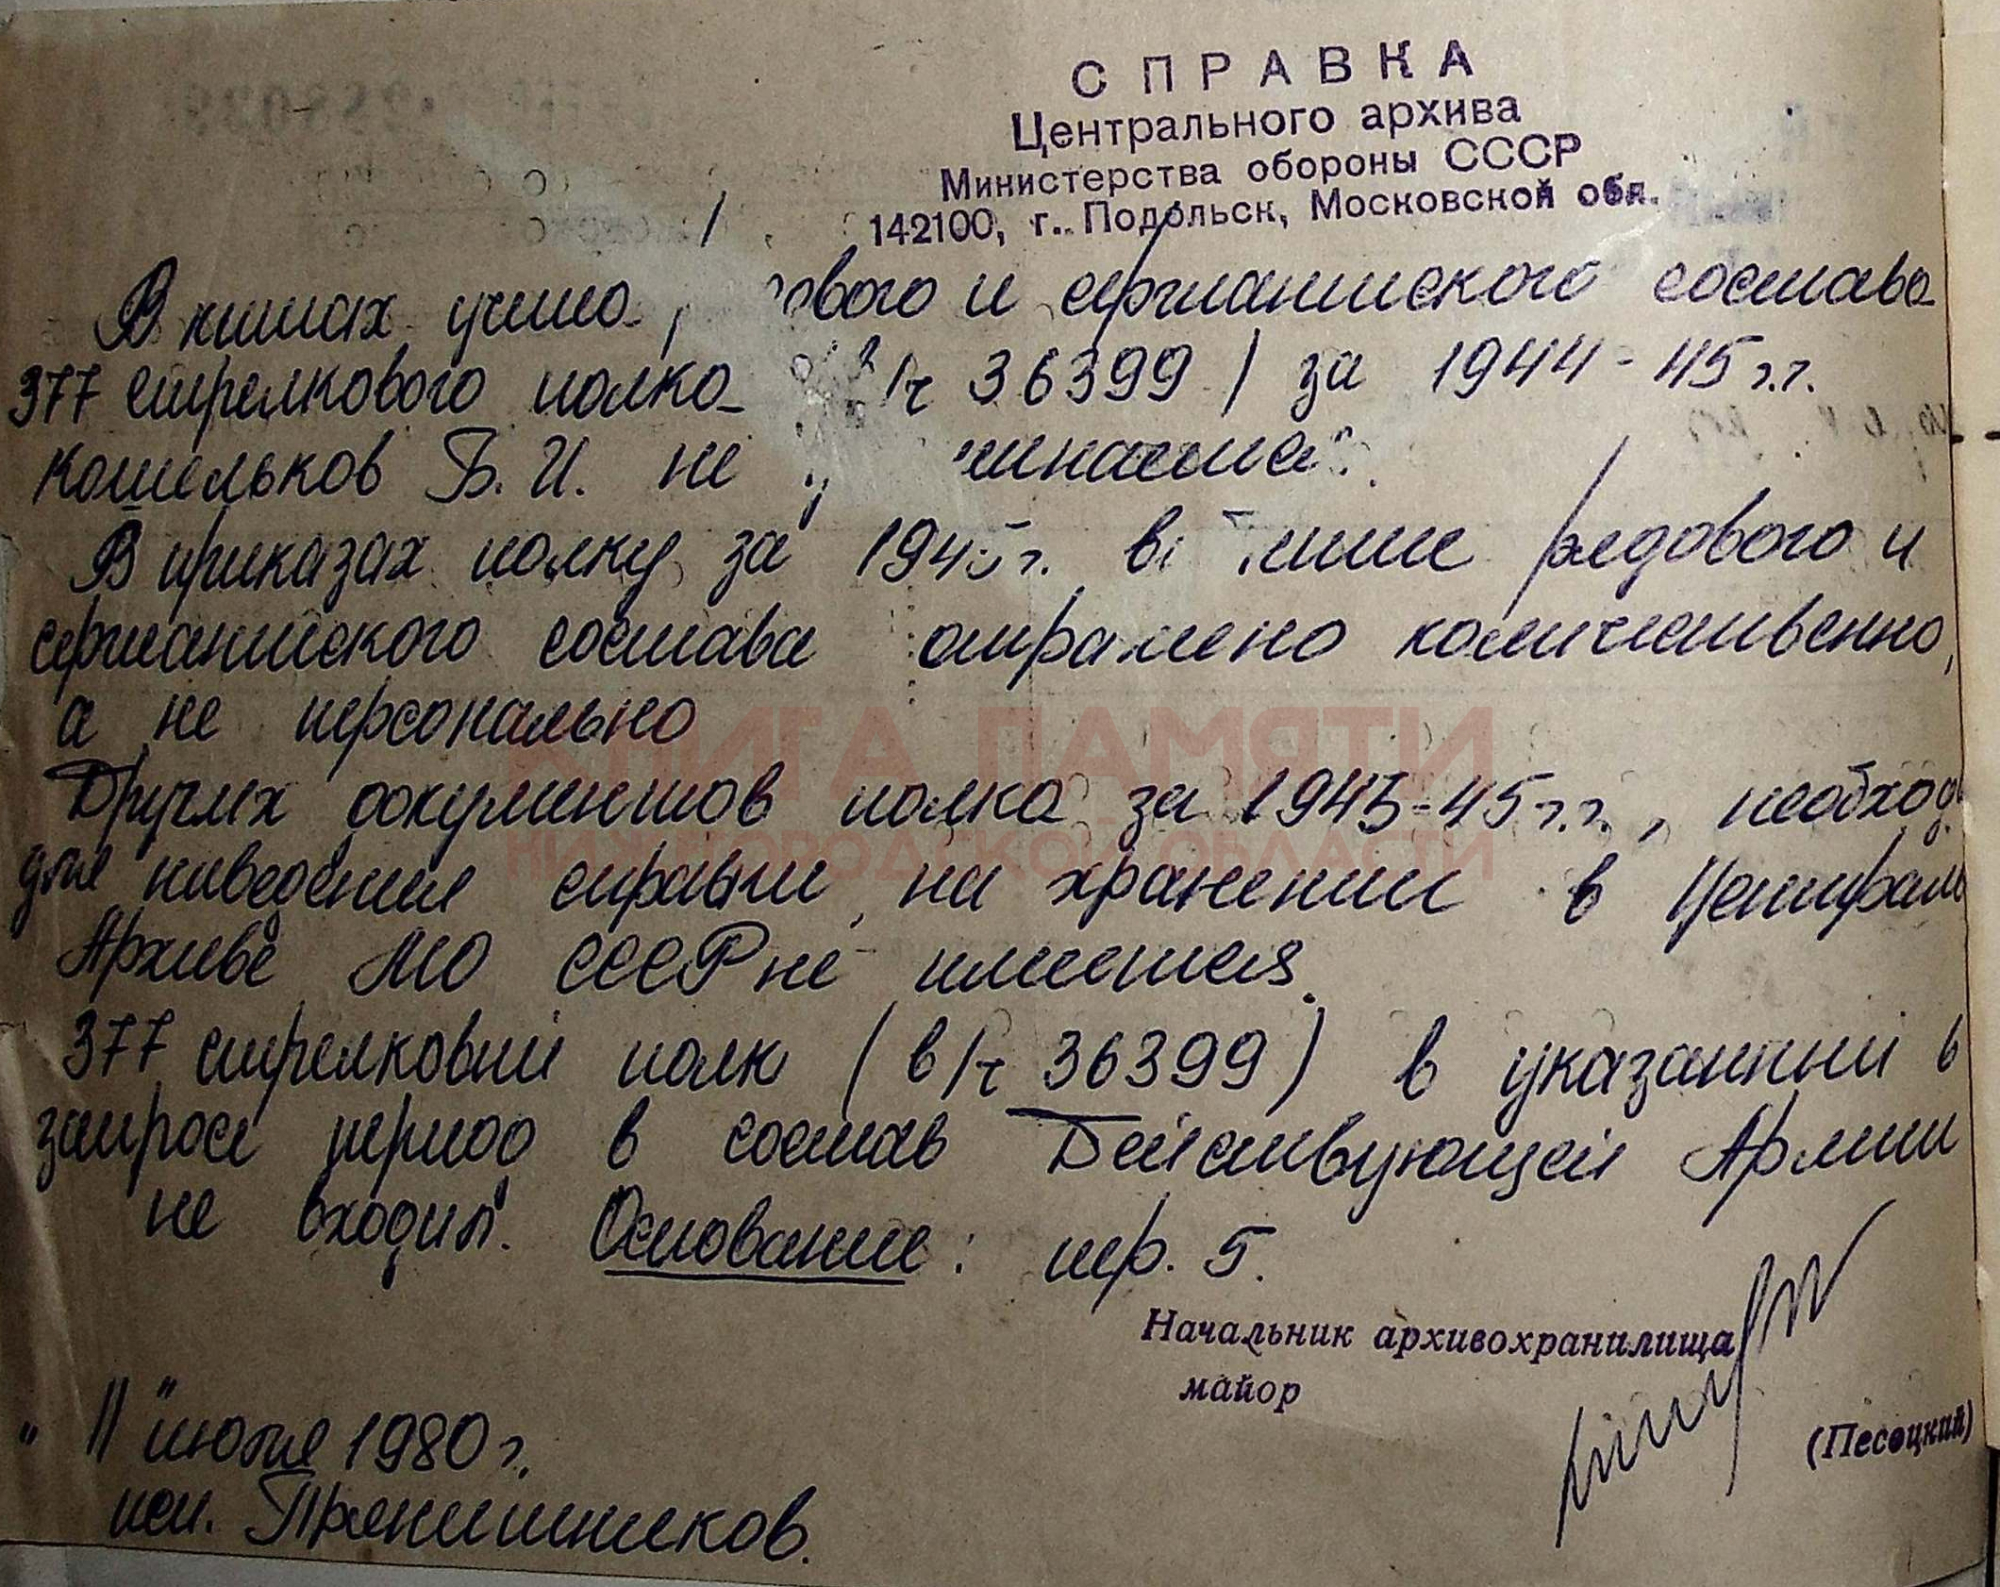 СПРАВКА
Центрального архива
Министерства обороны СССР
142100, г. Подольск, Московской обл.
В книгах учета ового и сержантского состава
377 стрелкового полка в/ч 36399 / за 1944-45 г.г.
Кошельков Б. И. не
В приказах полку за 1945 г. рядового и
сержантского состава отражено количественно,
а не персонально
Других документов полка за 1943-45 г.г., необход
для наведения справки, на хранении в Централь
Архиве МО СССР не имеется.
377 стрелковый полк (в/ч 36399) в указанный в
запросе период в состав Действующей Армии
не входил. Основание: пер. 5.
КНИГА ПАМЯТИ
НИЖЕГОРОДСКОЙ ОБЛАСТИ
Начальник архивохранилища
майор
(Песоцкий)
"11" июля 1980 г.
исп. Прянишников.